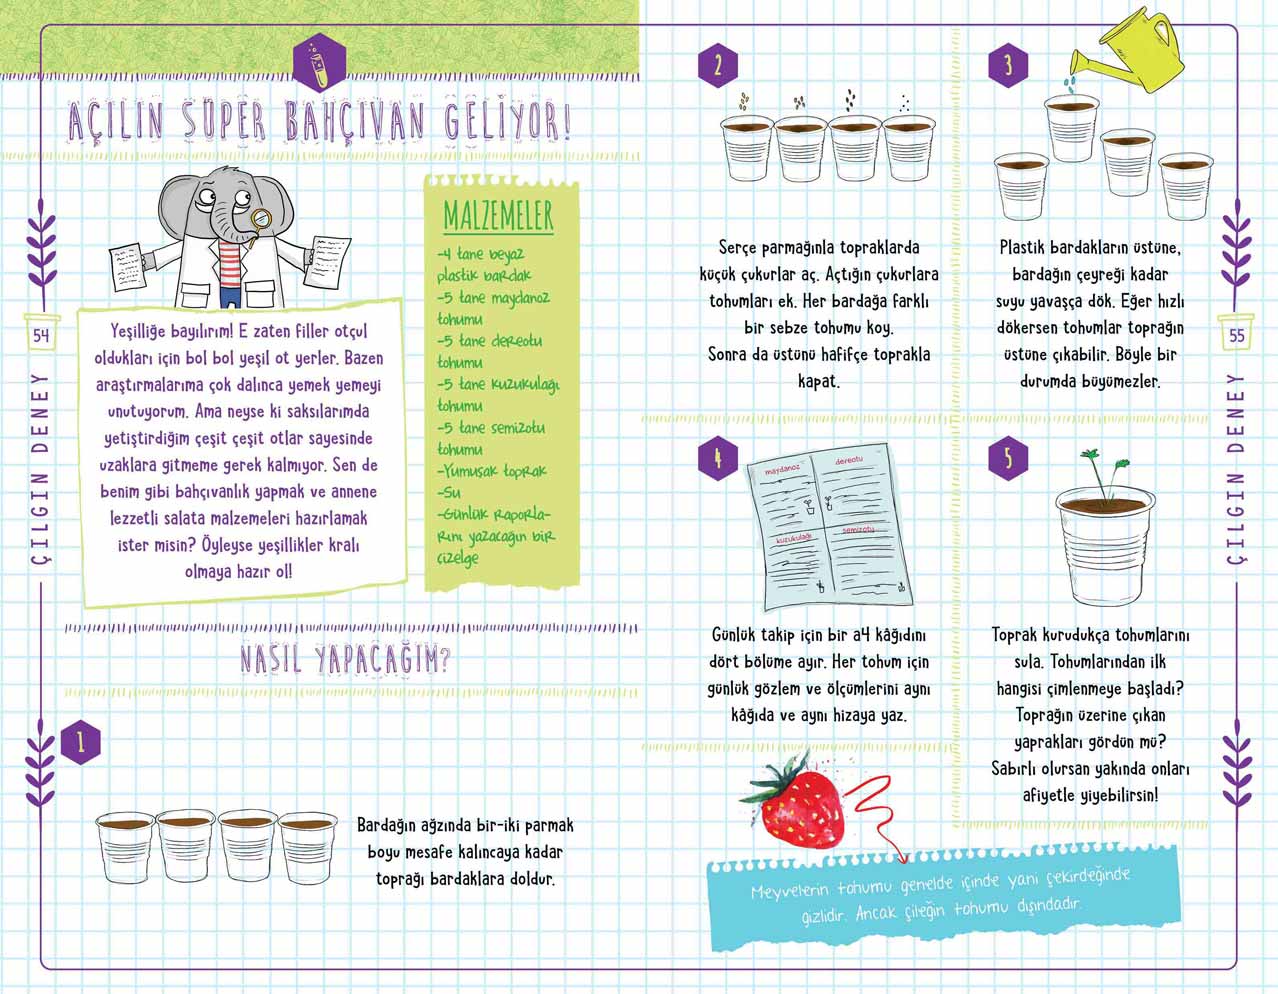 AÇILIN SÜPER BAHÇIVAN GELİYOR!
MALZEMELER
-4 tane beyaz
plastik bardak
-5 tane maydanoz
tohumu
-5 tane dereotu
tohumu
-5 tane kuzukulağı
tohumu
-5 tane semizotu
tohumu
-Yumuşak toprak
-Su
-Günlük raporla-
rını yazacağın bir
çizelge
Yeşilliğe bayılırım! E zaten filler otçul
oldukları için bol bol yeşil ot yerler. Bazen
araştırmalarıma çok dalınca yemek yemeyi
unutuyorum. Ama neyse ki saksılarımda
yetiştirdiğim çeşit çeşit otlar sayesinde
uzaklara gitmeme gerek kalmıyor. Sen de
benim gibi bahçıvanlık yapmak ve annene
lezzetli salata malzemeleri hazırlamak
ister misin? Öyleyse yeşillikler kralı
olmaya hazır ol!
54
ÇILGIN DENEY
NASIL YAPACAĞIM?
1
Bardağın ağzında bir-iki parmak
boyu mesafe kalıncaya kadar
toprağı bardaklara doldur.
2
Serçe parmağınla topraklarda
küçük çukurlar aç. Açtığın çukurlara
tohumları ek. Her bardağa farklı
bir sebze tohumu koy.
Sonra da üstünü hafifçe toprakla
kapat.
3
Plastik bardakların üstüne,
bardağın çeyreği kadar
suyu yavaşça dök. Eğer hızlı
dökersen tohumlar toprağın
üstüne çıkabilir. Böyle bir
durumda büyümezler.
4
maydanoz
dereotu
kuzukulağı
semizotu
Günlük takip için bir a4 kâğıdını
dört bölüme ayır. Her tohum için
günlük gözlem ve ölçümlerini aynı
kâğıda ve aynı hizaya yaz.
5
Toprak kurudukça tohumlarını
sula. Tohumlarından ilk
hangisi çimlenmeye başladı?
Toprağın üzerine çıkan
yaprakları gördün mü?
Sabırlı olursan yakında onları
afiyetle yiyebilirsin!
Meyvelerin tohumu genelde içinde yani çekirdeğinde
gizlidir. Ancak çileğin tohumu dışındadır.
55
ÇILGIN DENEY